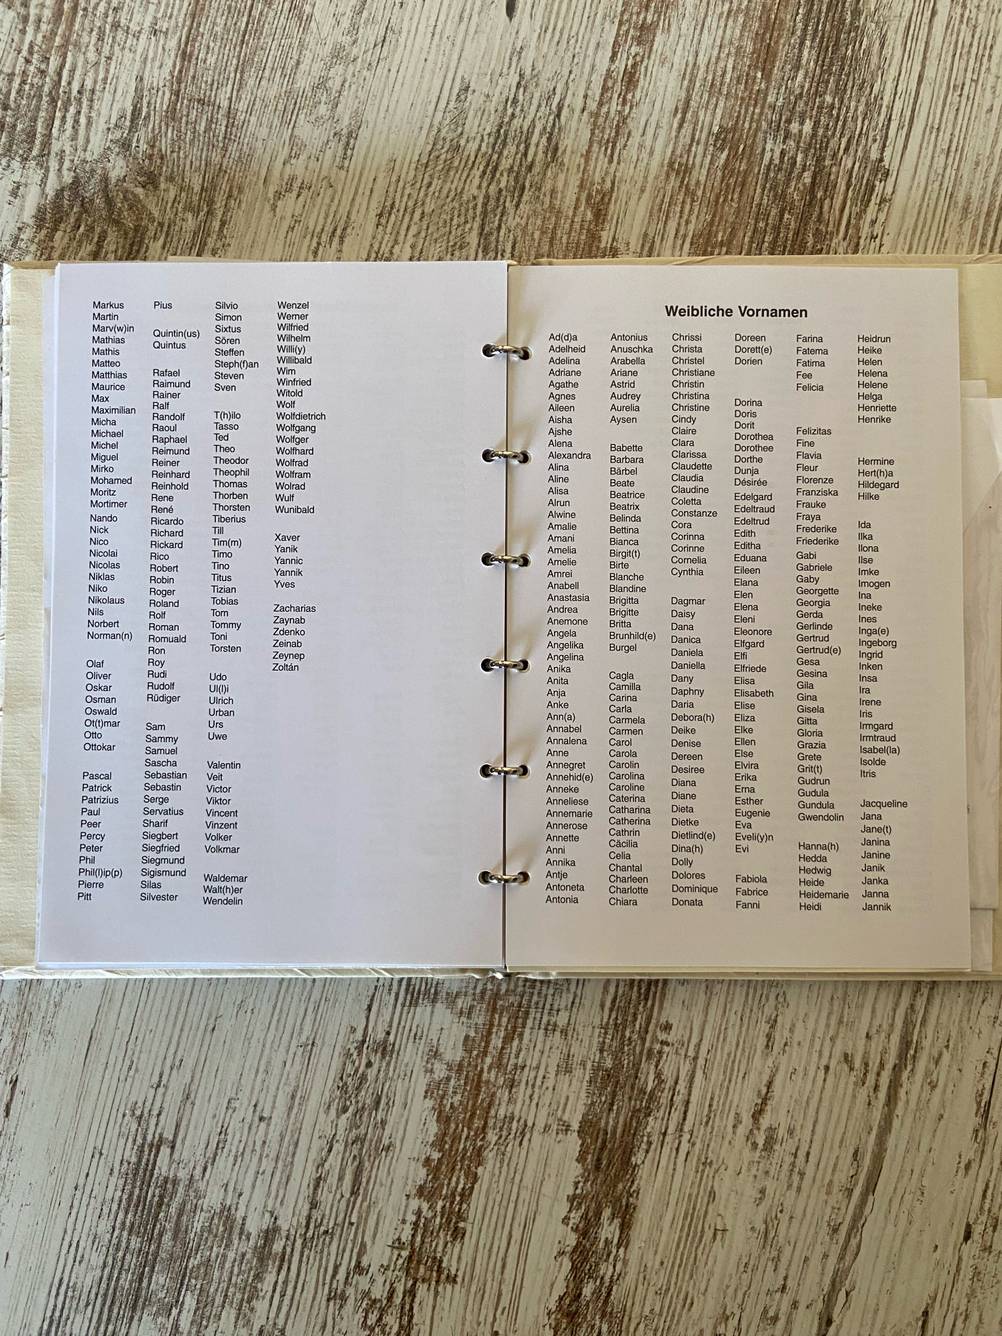 Markus
Martin
Marv(w)in
Mathias
Mathis
Matteo
Matthias
Maurice
Max
Maximilian
Micha
Michael
Michel
Miguel
Mirko
Mohamed
Moritz
Mortimer
Nando
Nick
Nico
Nicolai
Nicolas
Niklas
Niko
Nikolaus
Nils
Norbert
Norman(n)
Olaf
Oliver
Oskar
Osman
Oswald
Ot(t)mar
Otto
Ottokar
Pascal
Patrick
Patrizius
Paul
Peer
Percy
Peter
Phil
Phil(l)ip(p)
Pierre
Pitt
Pius
Quintin(us)
Quintus
Rafael
Raimund
Rainer
Ralf
Randolf
Raoul
Raphael
Reimund
Reiner
Reinhard
Reinhold
Rene
René
Ricardo
Richard
Rickard
Rico
Robert
Robin
Roger
Roland
Rolf
Roman
Romuald
Ron
Roy
Rudi
Rudolf
Rüdiger
Sam
Sammy
Samuel
Sascha
Sebastian
Sebastin
Serge
Servatius
Sharif
Siegbert
Siegfried
Siegmund
Sigismund
Silas
Silvester
Silvio
Simon
Sixtus
Sören
Steffen
Steph(f)an
Steven
Sven
T(h)ilo
Tasso
Ted
Theo
Theodor
Theophil
Thomas
Thorben
Thorsten
Tiberius
Till
Tim(m)
Timo
Tino
Titus
Tizian
Tobias
Tom
Tommy
Toni
Torsten
Udo
Ul(l)i
Ulrich
Urban
Urs
Uwe
Valentin
Veit
Victor
Viktor
Vincent
Vinzent
Volker
Volkmar
Waldemar
Walt(h)er
Wendelin
Wenzel
Werner
Wilfried
Wilhelm
Willi(y)
Willibald
Wim
Winfried
Witold
Wolf
Wolfdietrich
Wolfgang
Wolfger
Wolfhard
Wolfrad
Wolfram
Wolrad
Wulf
Wunibald
Xaver
Yanik
Yannic
Yannik
Yves
Zacharias
Zaynab
Zdenko
Zeinab
Zeynep
Zoltán
Weibliche Vornamen
Ad(d)a
Adelheid
Adelina
Adriane
Agathe
Agnes
Aileen
Aisha
Ajshe
Alena
Alexandra
Alina
Aline
Alisa
Alrun
Alwine
Amalie
Amani
Amelia
Amelie
Amrei
Anabell
Anastasia
Andrea
Anemone
Angela
Angelika
Angelina
Anika
Anita
Anja
Anke
Ann(a)
Annabel
Annalena
Anne
Annegret
Annehid(e)
Anneke
Anneliese
Annemarie
Annerose
Annette
Anni
Annika
Antje
Antoneta
Antonia
Antonius
Anuschka
Arabella
Ariane
Astrid
Audrey
Aurelia
Aysen
Babette
Barbara
Bärbel
Beate
Beatrice
Beatrix
Belinda
Bettina
Bianca
Birgit(t)
Birte
Blanche
Blandine
Brigitta
Brigitte
Britta
Brunhild(e)
Burgel
Cagla
Camilla
Carina
Carla
Carmela
Carmen
Carol
Carola
Carolin
Carolina
Caroline
Caterina
Catharina
Catherina
Cathrin
Cäcilia
Celia
Chantal
Charleen
Charlotte
Chiara
Chrissi
Christa
Christel
Christiane
Christin
Christina
Christine
Cindy
Claire
Clara
Clarissa
Claudette
Claudia
Claudine
Coletta
Constanze
Cora
Corinna
Corinne
Cornelia
Cynthia
Dagmar
Daisy
Dana
Danica
Daniela
Daniella
Dany
Daphny
Daria
Debora(h)
Deike
Denise
Dereen
Desiree
Diana
Diane
Dieta
Dietke
Dietlind(e)
Dina(h)
Dolly
Dolores
Dominique
Donata
Doreen
Dorett(e)
Dorien
Dorina
Doris
Dorit
Dorothea
Dorothee
Dorthe
Dunja
Désirée
Edelgard
Edeltraud
Edeltrud
Edith
Editha
Eduana
Eileen
Elana
Elen
Elena
Eleni
Eleonore
Elfgard
Elfi
Elfriede
Elisa
Elisabeth
Elise
Eliza
Elke
Ellen
Else
Elvira
Erika
Erna
Esther
Eugenie
Eva
Eveli(y)n
Evi
Fabiola
Fabrice
Fanni
Farina
Fatema
Fatima
Fee
Felicia
Felizitas
Fine
Flavia
Fleur
Florenze
Franziska
Frauke
Fraya
Frederike
Friederike
Gabi
Gabriele
Gaby
Georgette
Georgia
Gerda
Gerlinde
Gertrud
Gertrud(e)
Gesa
Gesina
Gila
Gina
Gisela
Gitta
Gloria
Grazia
Grete
Grit(t)
Gudrun
Gudula
Gundula
Gwendolin
Hanna(h)
Hedda
Hedwig
Heide
Heidemarie
Heidi
Heidrun
Heike
Helen
Helena
Helene
Helga
Henriette
Henrike
Hermine
Hert(h)a
Hildegard
Hilke
Ida
Ilka
Ilona
Ilse
Imke
Imogen
Ina
Ineke
Ines
Inga(e)
Ingeborg
Ingrid
Inken
Insa
Ira
Irene
Iris
Irmgard
Irmtraud
Isabel(la)
Isolde
Itris
Jacqueline
Jana
Jane(t)
Janina
Janine
Janik
Janka
Janna
Jannik